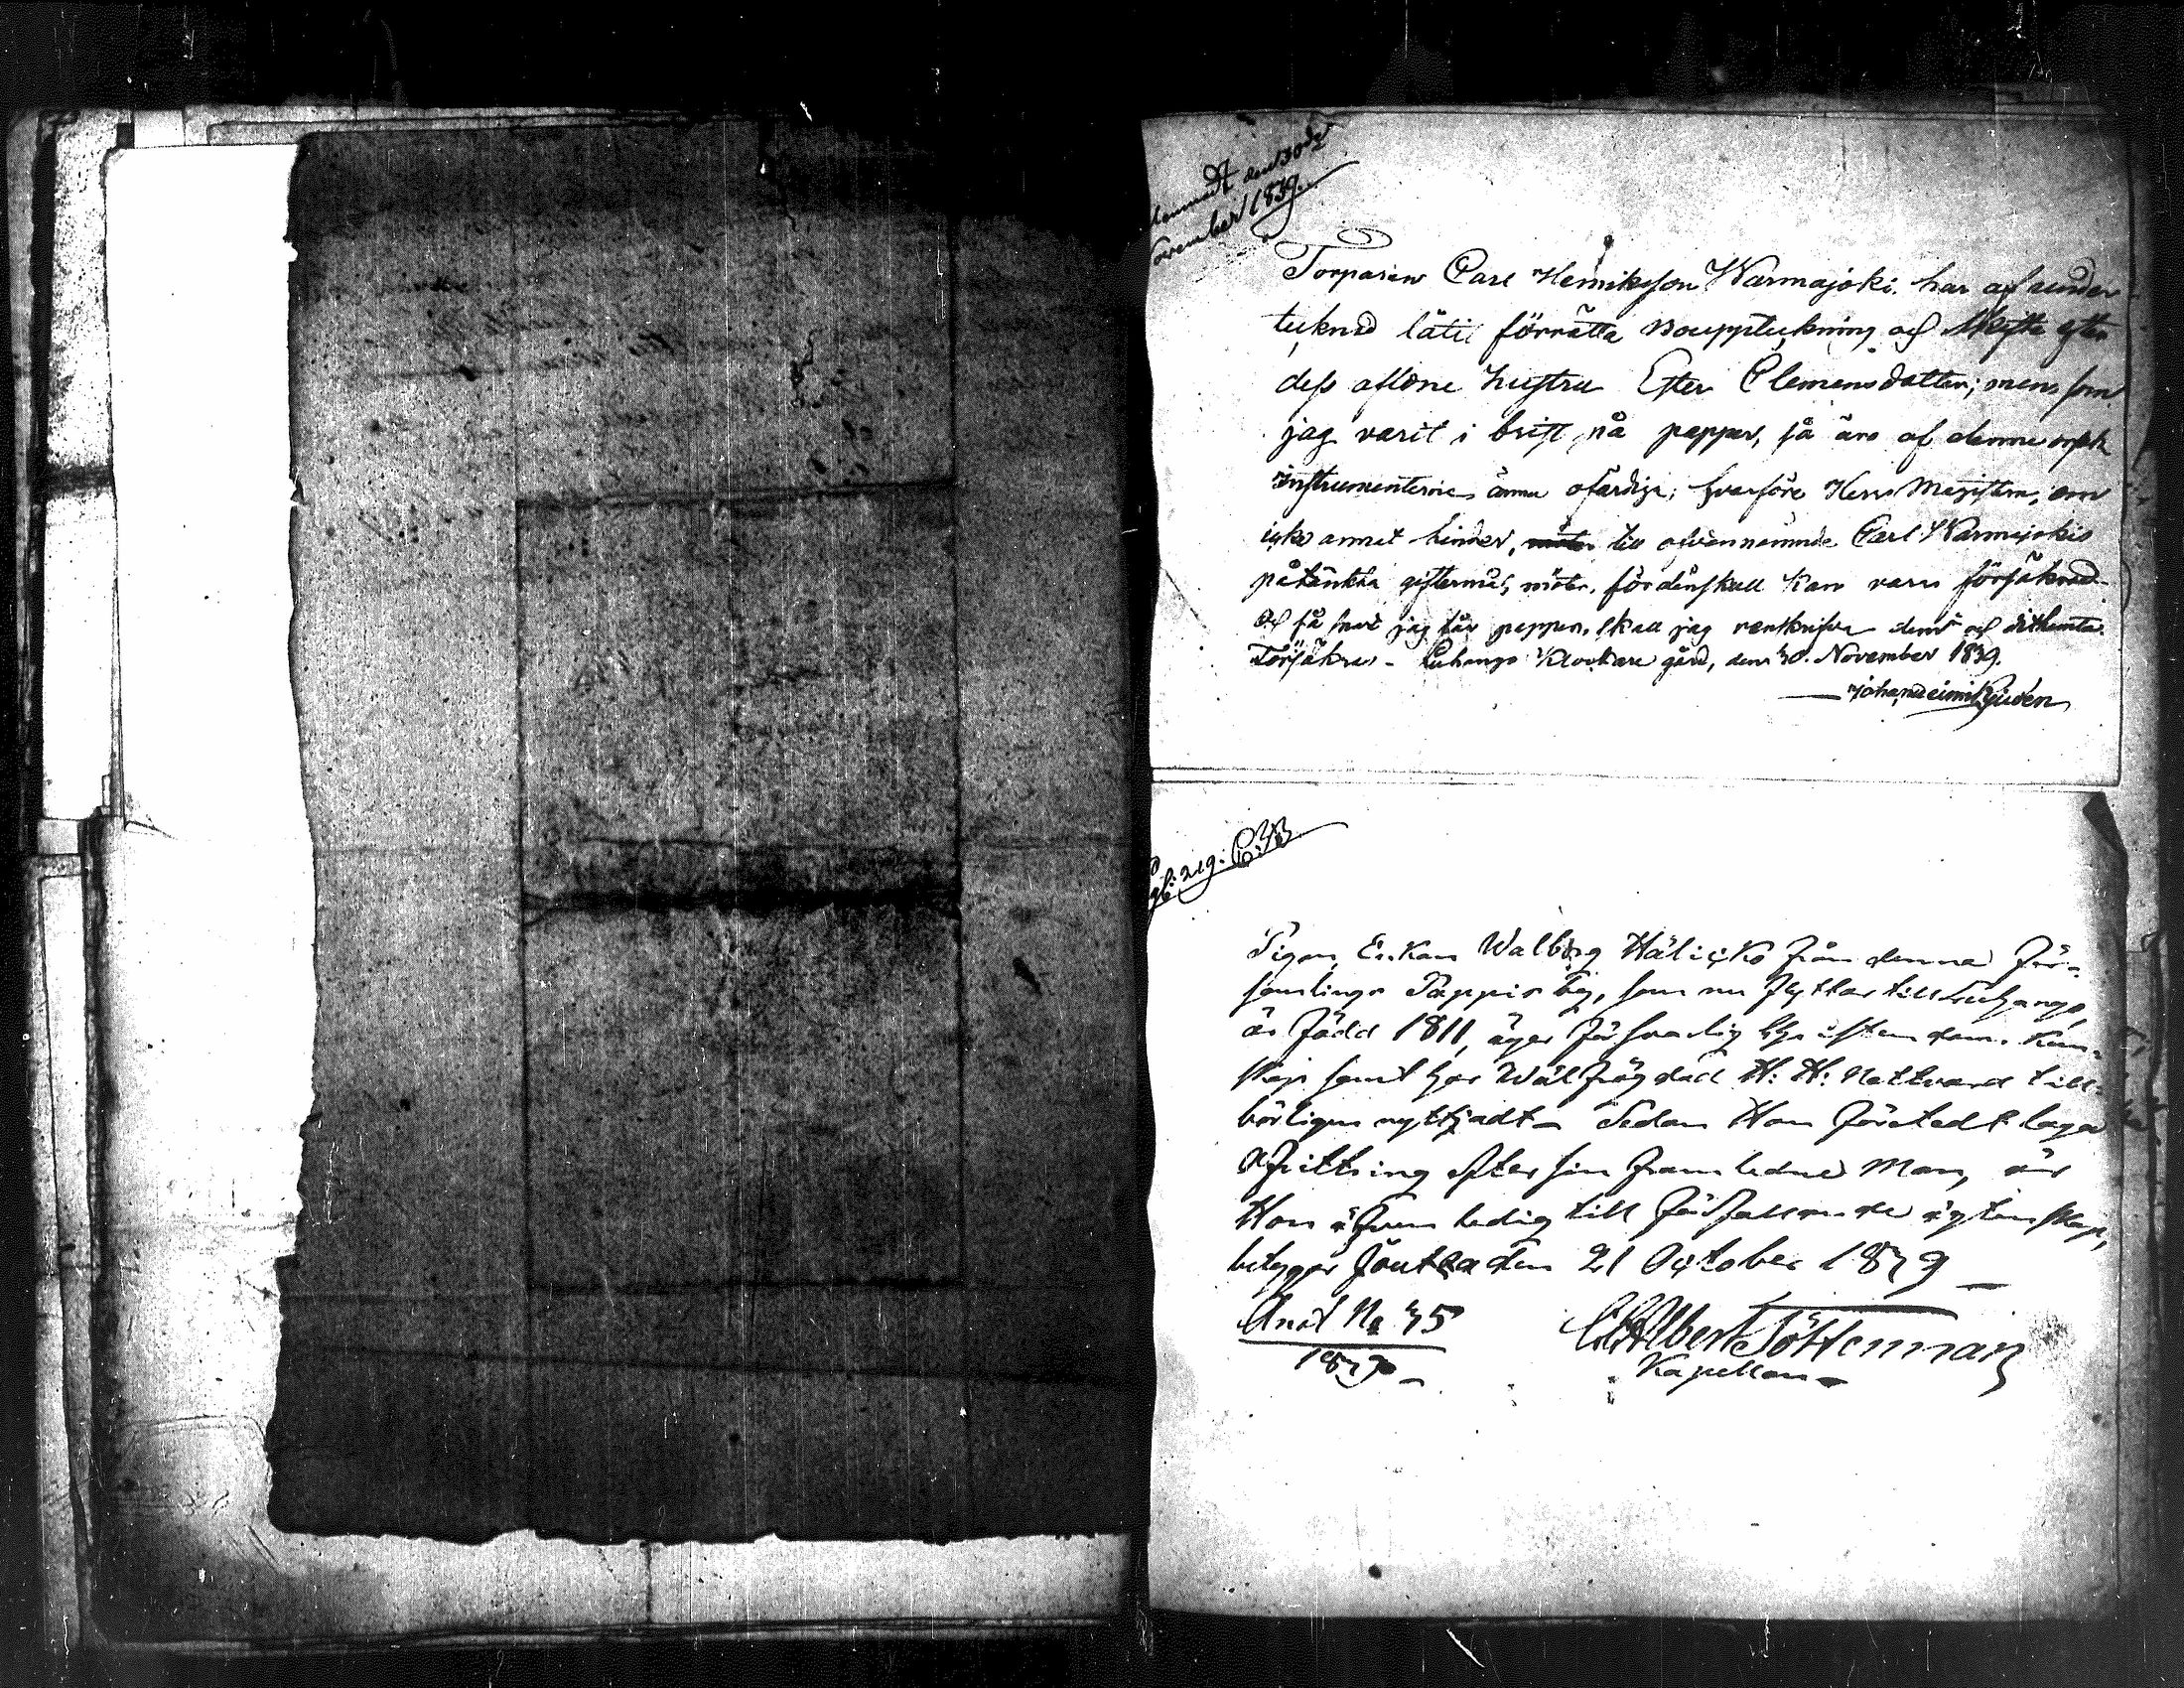 den 30de
November 1839.
Torparen Carl Henriksson Warmajoki har af under-
tecknad låtit förrätta bouppteckning och skifte efter
dess aflidne hustru Ester Clemensdotter; men som
jag varit i brist på papper, så äro af denne orsak
Instrumenterne ännu ofärdige; hvarföre Herr Magistern, om
icke annat hinder, till ofvannämnde Carl Warmajokis
påtänkta giftermål, möter, fördenskull kan vara försäkrad
at så snart jag får papper, skall jag renskrifva dem och
Försäkrar. Luhango Klockare gård, den 30. November 1839.
Johan
Pigan, Enkan Walborg Häliçkö från denna För-
samlings Tappis by, som nu flyttar till Luhango,
är född 1811, äger försvarlig Christendoms kun-
skap samt har Wälfrägdad H: H: Nattvard till-
börligen nyttjadt. Sedan Hon företedt laga
afvittring efter sin framledne Man, är
Hon äfven ledig till förfallande ägtenskap,
betygar Joutsa den 21 October 1839
Anat No 35
1839
Albert Sötterman
Kapellan